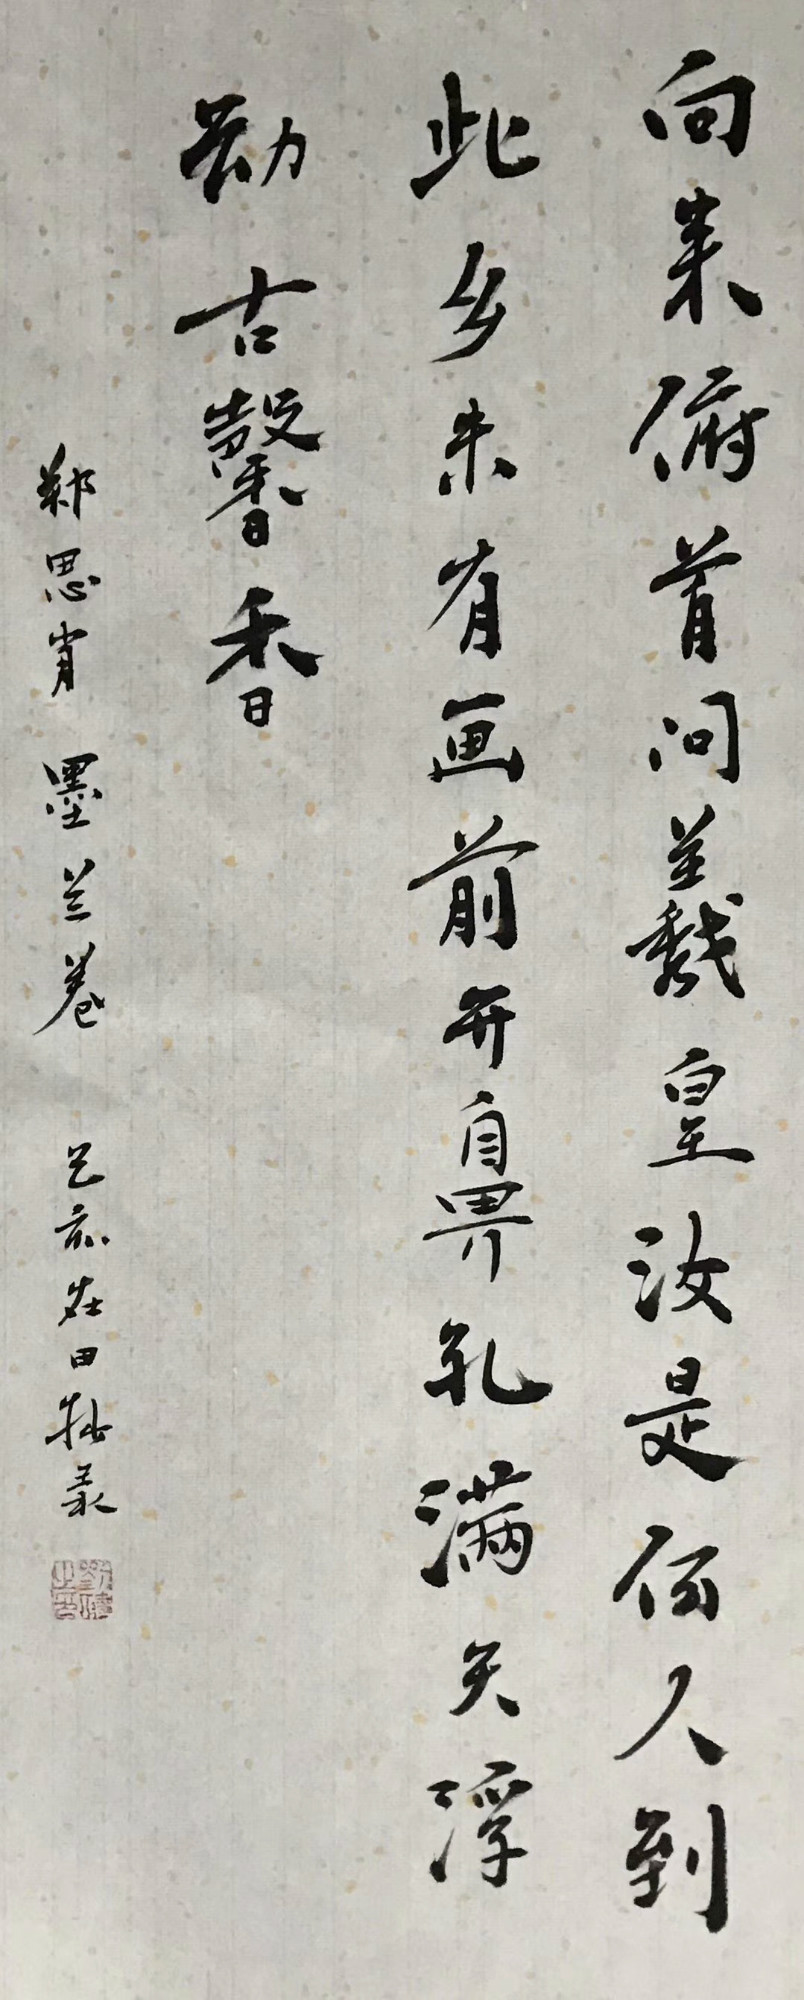 向来俯首问羲皇汝是何人到
此乡未有画前开鼻孔满天浮
动古馨香
郑思肖 墨兰卷 己亥在田拙录